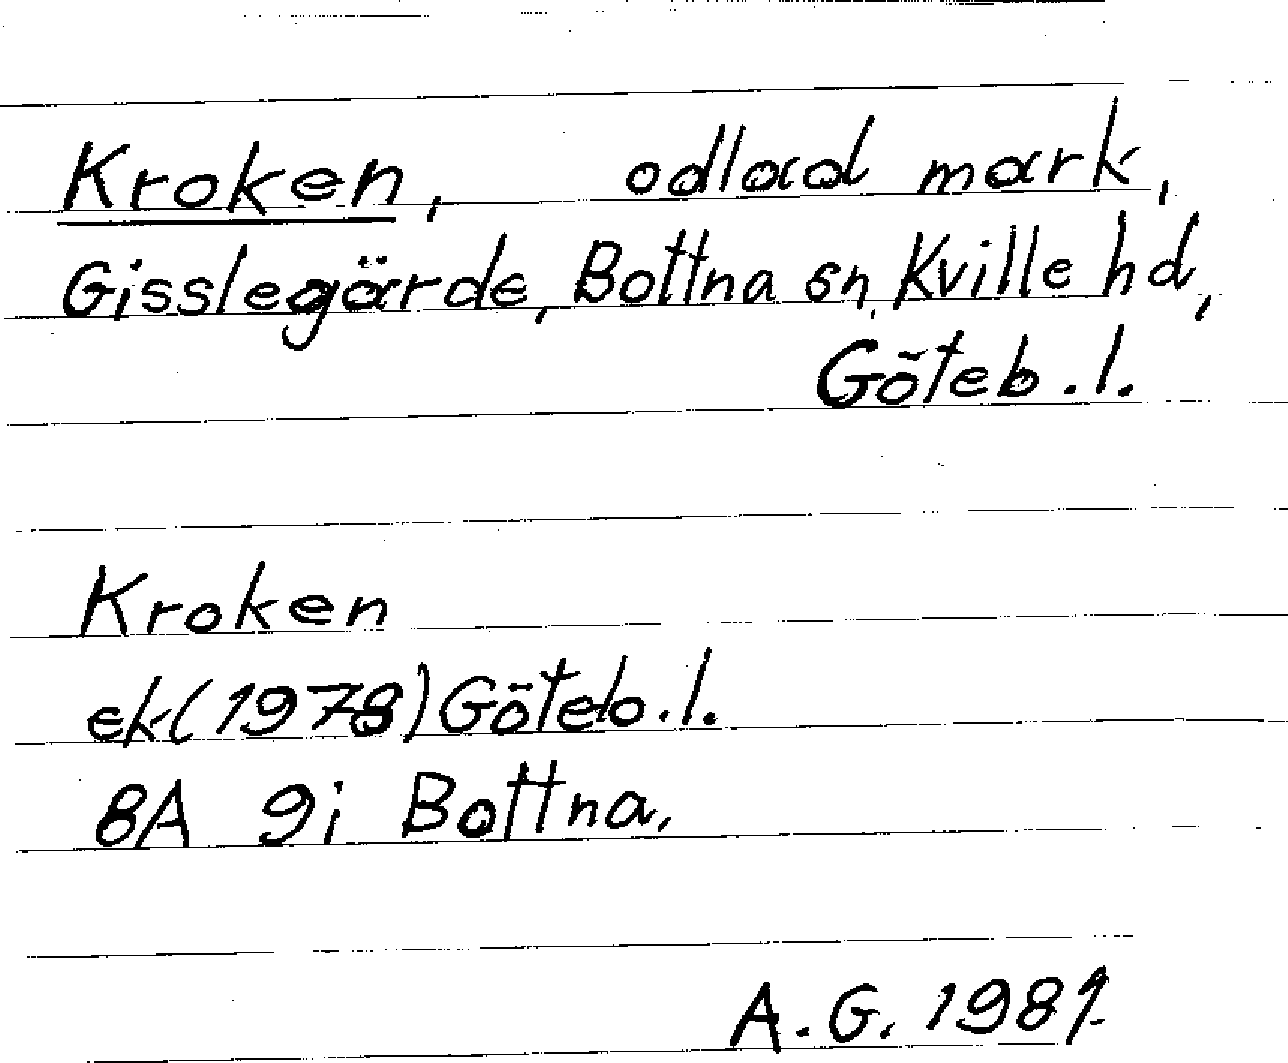 Kroken, odlad mark,
Gisslegärde, Bottna sn, Kville hd,
Göteb. l.
Kroken
ek (1978) Göteb. l.
8A 9i Bottna.
A. G. 1981